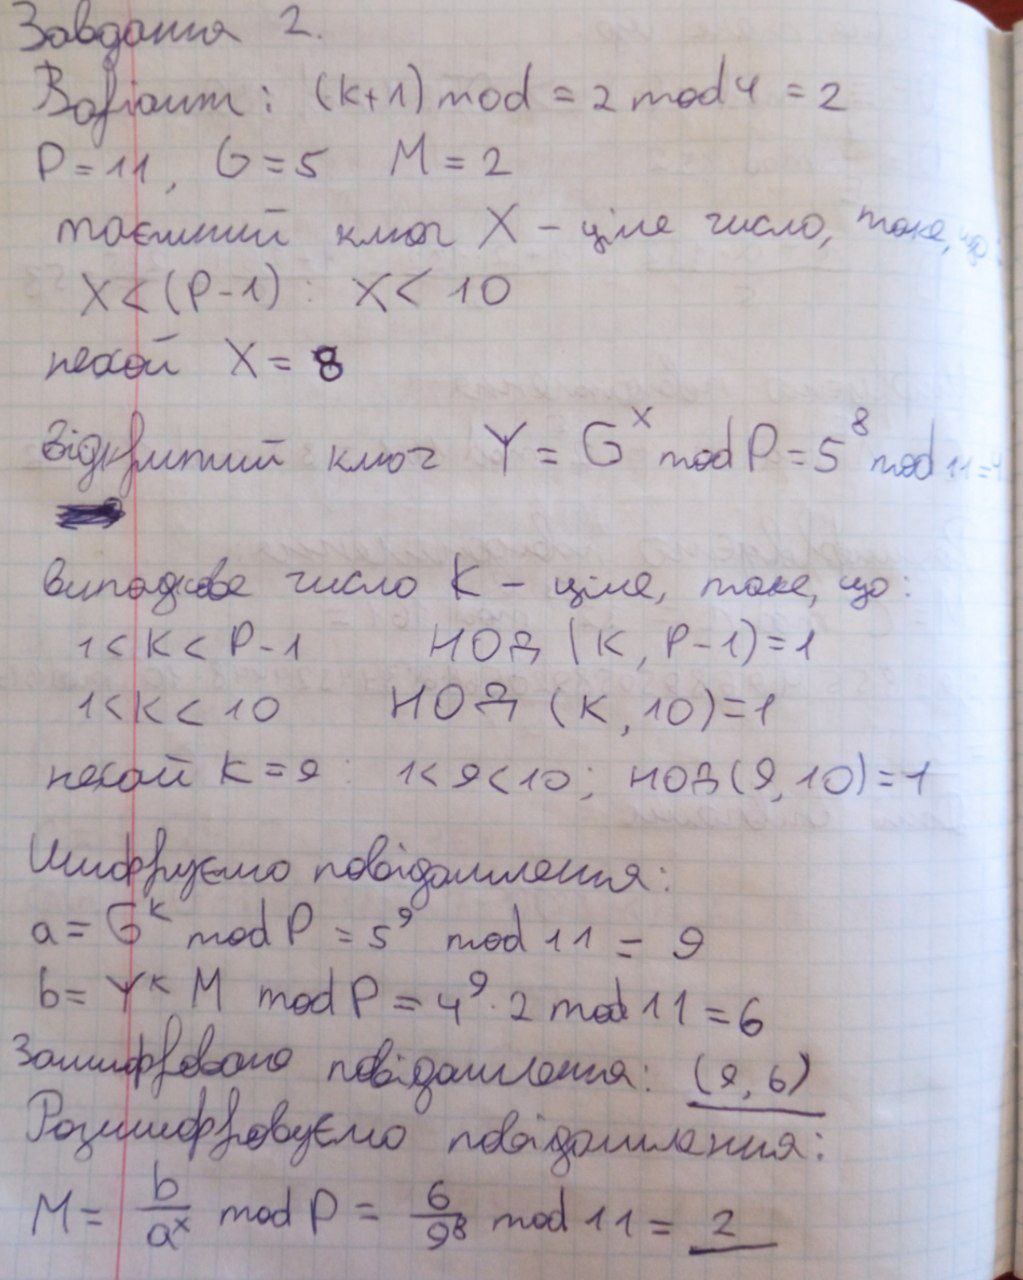 Завдання 2.
Варіант: (k+1) mod = 2 mod 4 = 2
P = 11, G = 5 M = 2
таємний ключ X – ціле число, таке, що:
X < (P-1) : X < 10
нехай X = 8
Відкритий ключ Y = G^x mod P = 5^8 mod 11 = 4
випадкове число K – ціле, таке, що:
1 < K < P-1 НОД (K, P-1) = 1
1 < K < 10 НОД (K, 10) = 1
нехай K = 9 : 1 < 9 < 10; НОД (9, 10) = 1
Шифруємо повідомлення:
a = G^k mod P = 5^9 mod 11 = 9
b = Y^k M mod P = 4^9 · 2 mod 11 = 6
Зашифровано повідомлення: (9, 6)
Розшифровуємо повідомлення:
M = b/a^x mod P = 6/9^8 mod 11 = 2